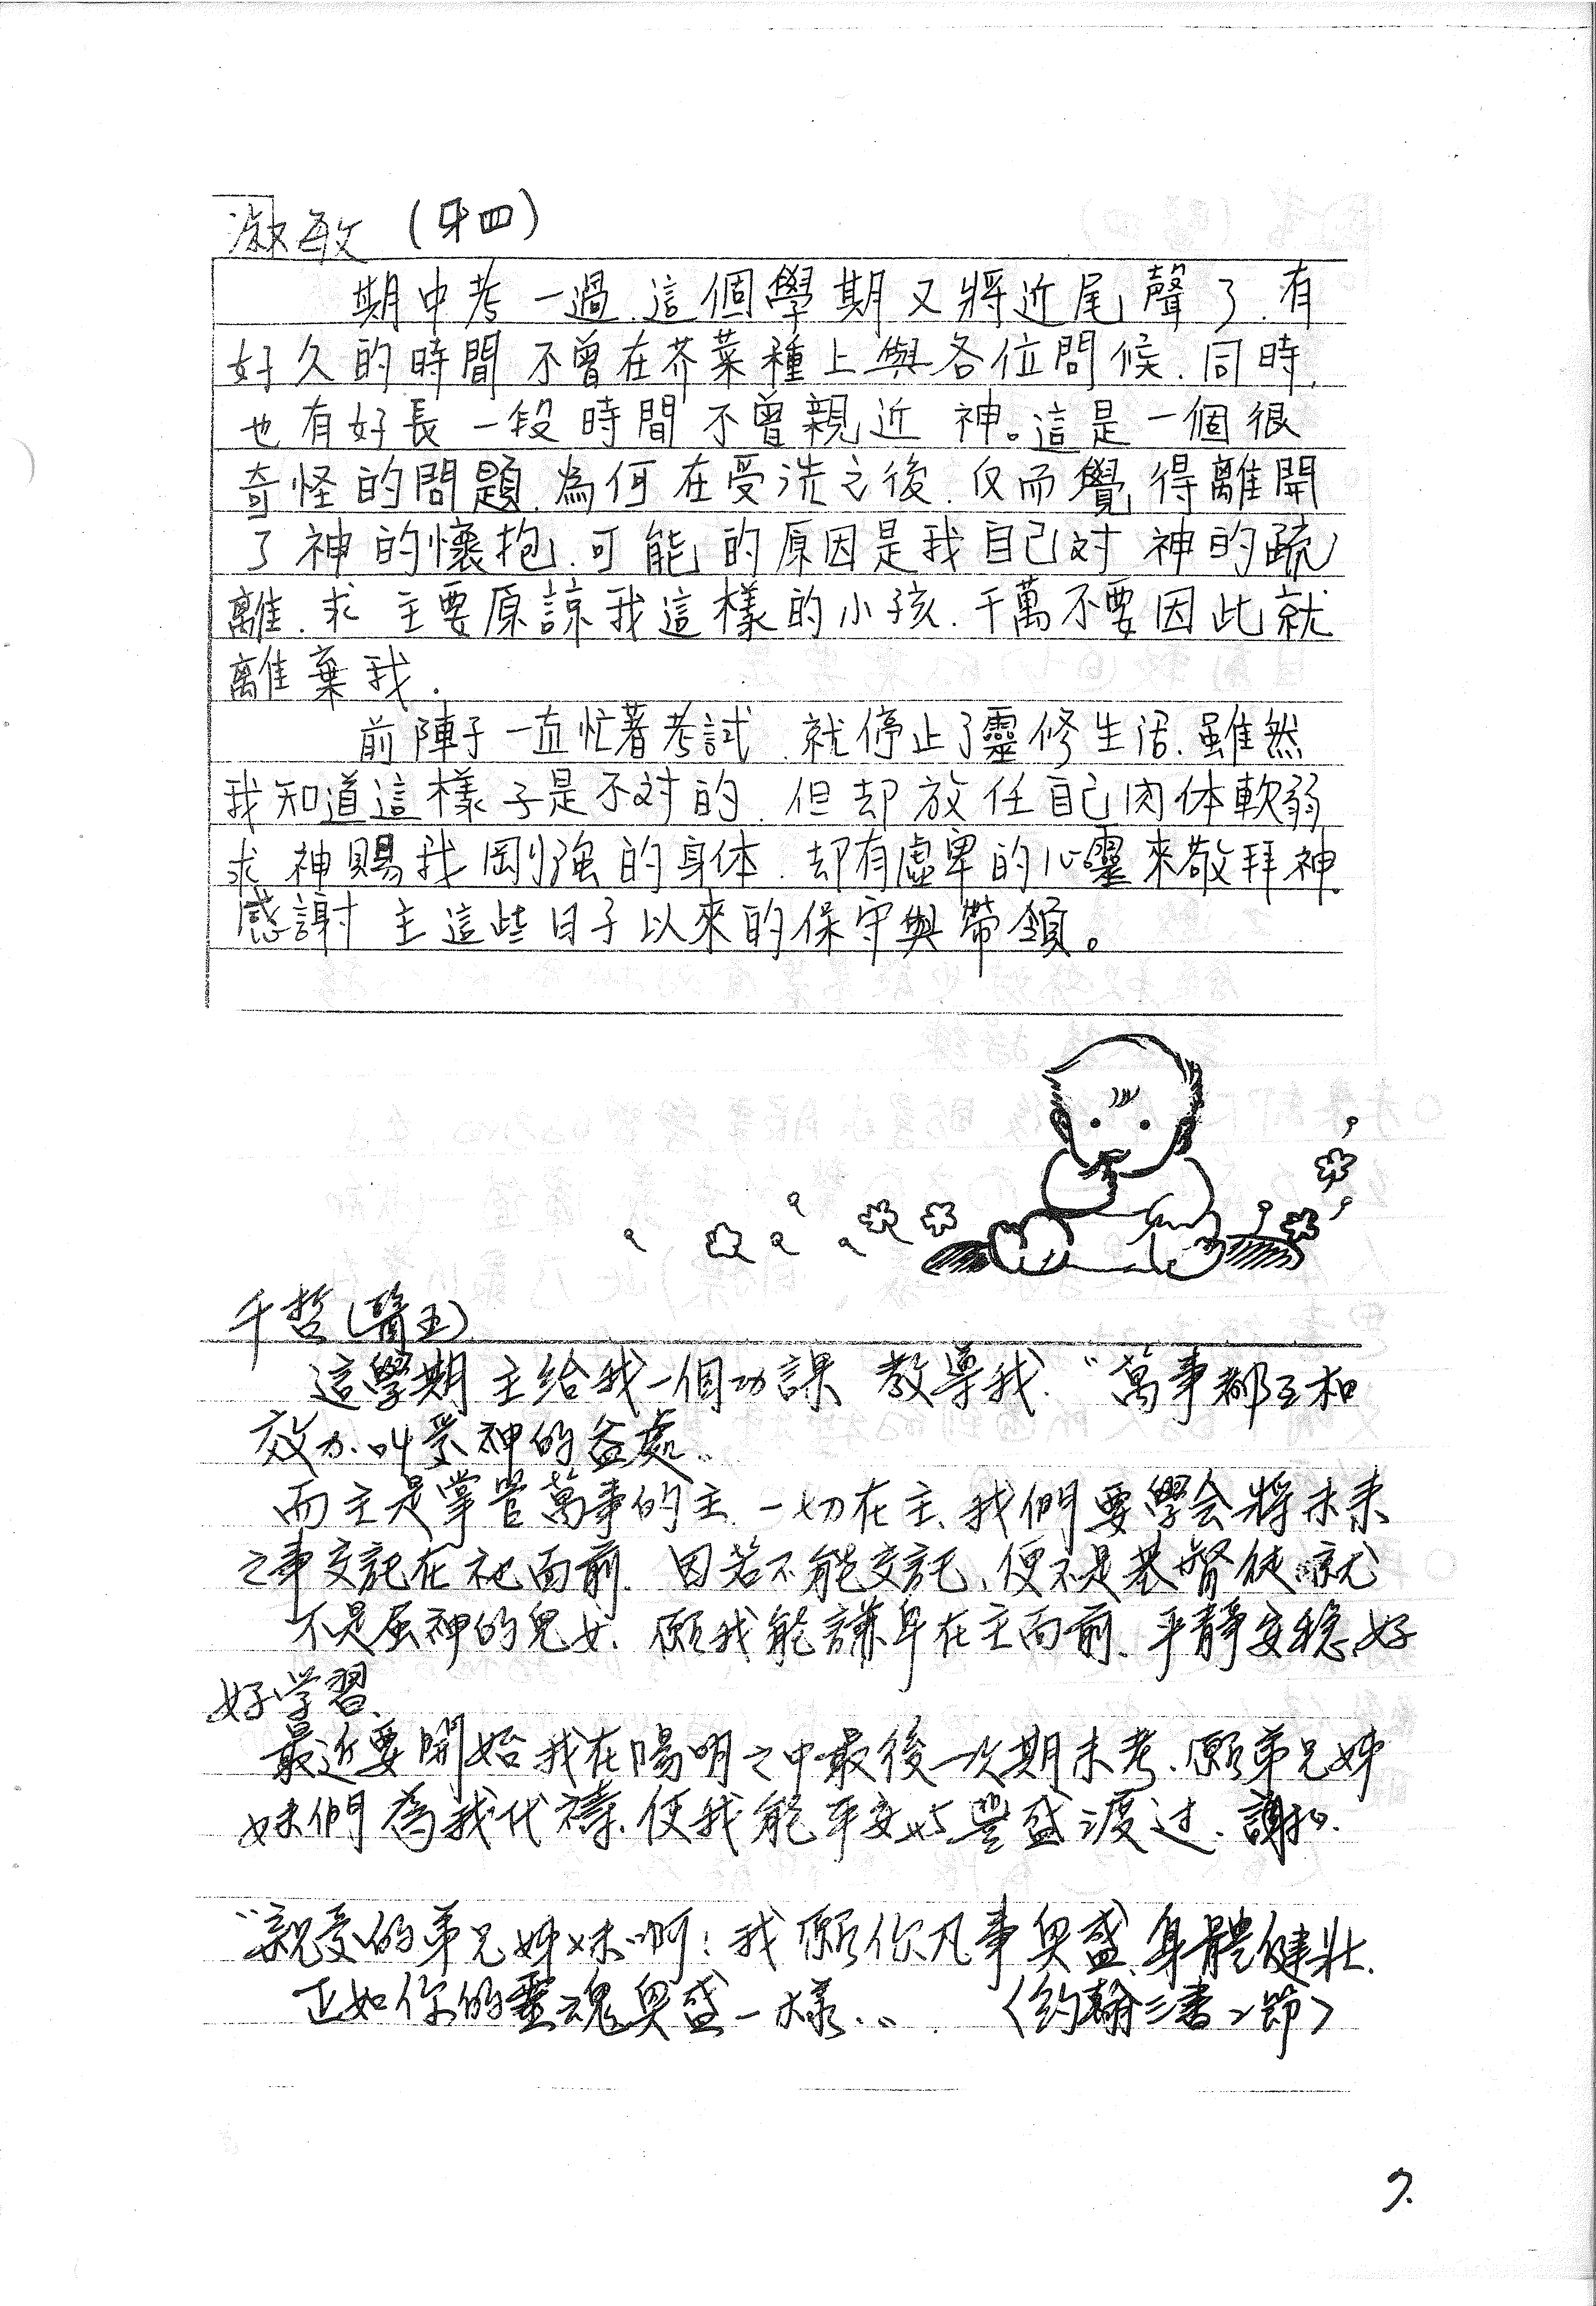 淑敏 (牙四)
期中考一過.這個學期又將近尾聲了.有
好久的時間不曾在芥菜種上與各位問候.同時,
也有好長一段時間不曾親近 神。這是一個很
奇怪的問題.為何在受洗之後.反而覺得離開
了神的懷抱.可能的原因是我自己对 神的疏
離.求 主要原諒我這樣的小孩.千萬不要因此就
離棄我.
前陣子一直忙著考試.就停止了靈修生活.雖然
我知道這樣子是不对的.但却放任自己肉体軟弱
求 神賜我剛強的身体.却有虛卑的心靈來敬拜神.
感謝 主這些日子以來的保守與帶領。
千哲(醫五)
這學期 主給我一個功課 教導我."萬事都互相
效力.叫愛神的益處"
而主是掌管萬事的主.一切在主、我們要學会將未來
之事交託在祂面前.因若不能交託、便不是基督徒.就
不是屬神的兒女.願我能謙卑在主面前.平靜安穩.好
好学習.
最近要開始我在陽明之中最後一次期末考.願弟兄姊
妹們為我代禱.使我能平安与豐盛渡过.謝扣.
"親愛的弟兄姊妹啊:我願你凡事興盛.身體健壯.
正如你的靈魂興盛一樣."  〈約翰三書2節〉
7.